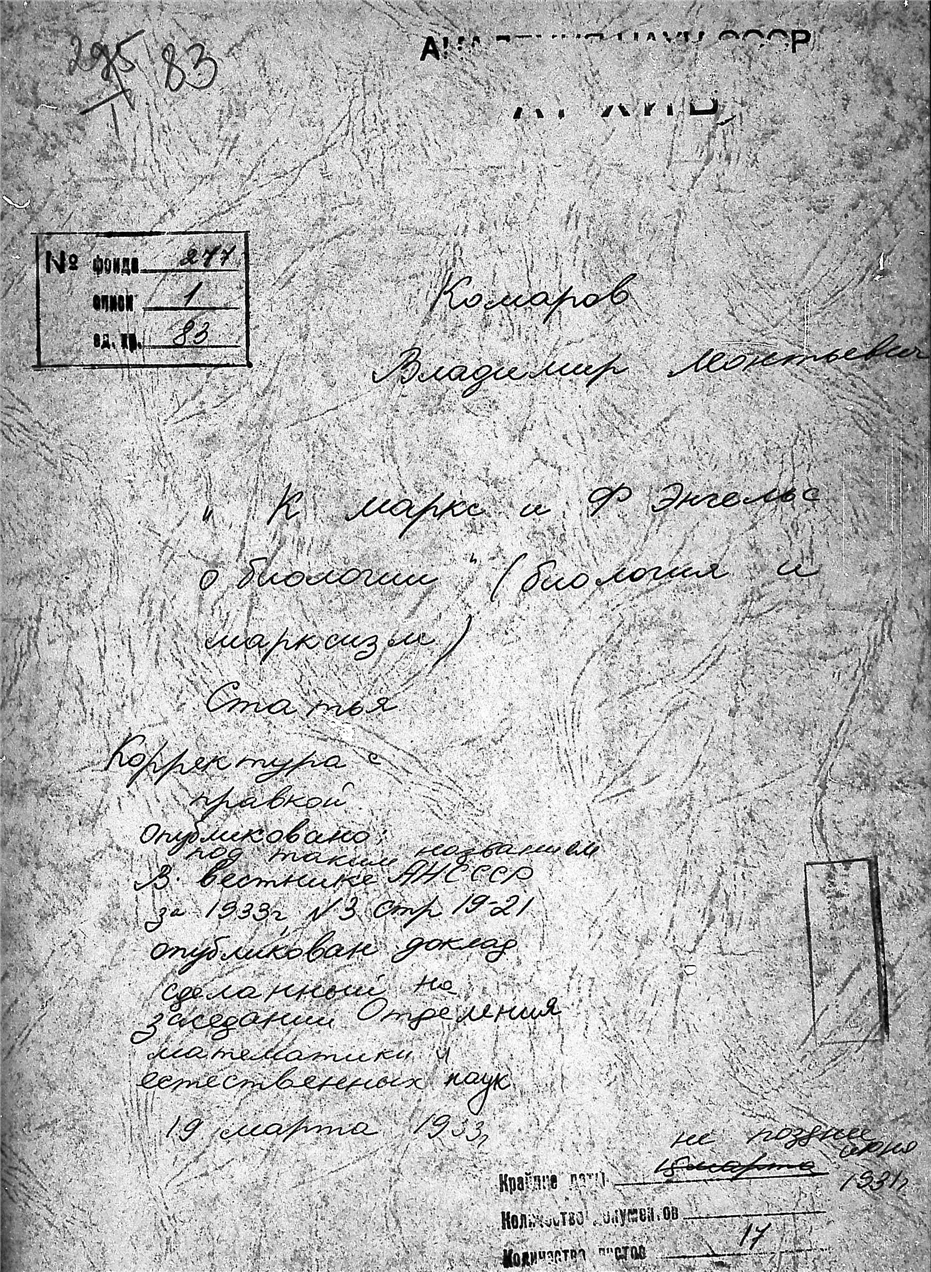 295 83
I
АКАДЕМИЯ НАУК СССР
АРХИВ
№ фонда 277
описи 1
ед. хр. 83
Комаров
Владимир Леонтьевич
„К маркс и Ф Энгельс
о биологии" (биология и
марксизм)
Статья
Корректура с
правкой
Опубликовано:
под таким названием
В вестнике АН СССР
за 1933г N3 стр 19-21
опубликован доклад
сделанный на
заседании Отделения
математики и
естественных наук
19 марта 1933г
не позднее
июня
Крайние даты 18 марта
193
Количество документов
Количество листов 17